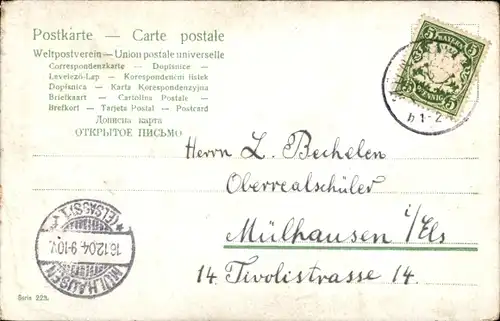 Postkarte — Carte postale
Weltpostverein — Union postale universelle
Correspondenzkarte — Dopisnice —
Levelező-Lap — Korespondenčni listek
Dopisnica — Karta Korespondenzyjna
Briefkaart — Cartolina Postale —
Brefkort — Tarjeta Postal — Postcard
Дописна карта
ОТКРЫТОЕ ПИСЬМО
5 BAYERN 5
5 5
Herrn L. Bechelen
Oberrealschüler
Mülhausen i/Els
14 Tivolistrasse 14.
* (ELSASS) 1 *
16.12.04. 9-10V.
MÜLHAUSEN
Serie 229.